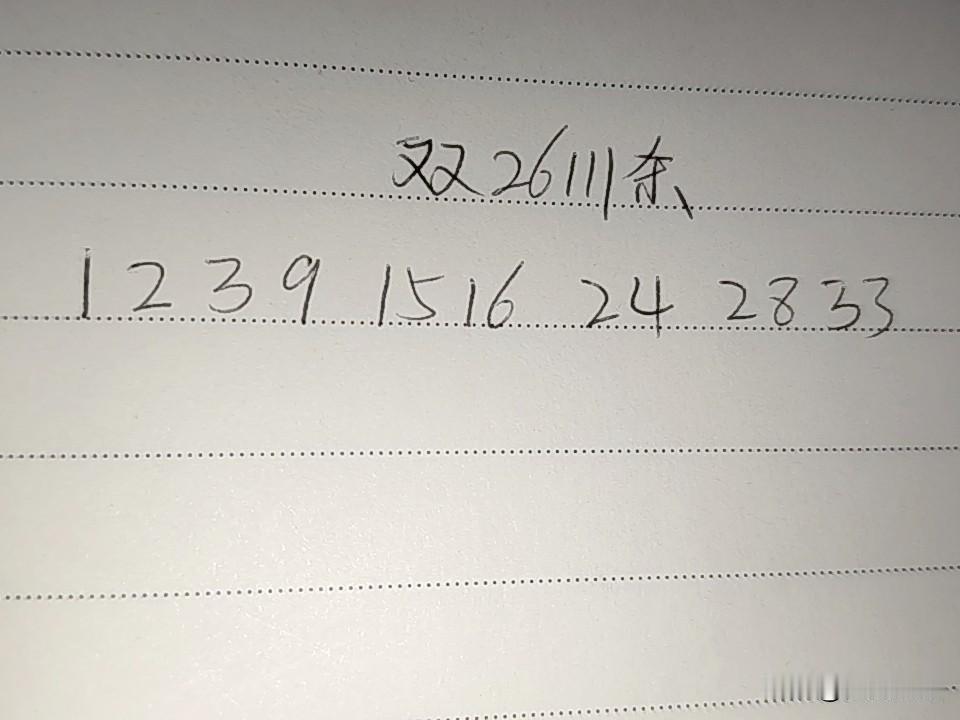 双26111杀、
1 2 3 9 15 16 24 28 33